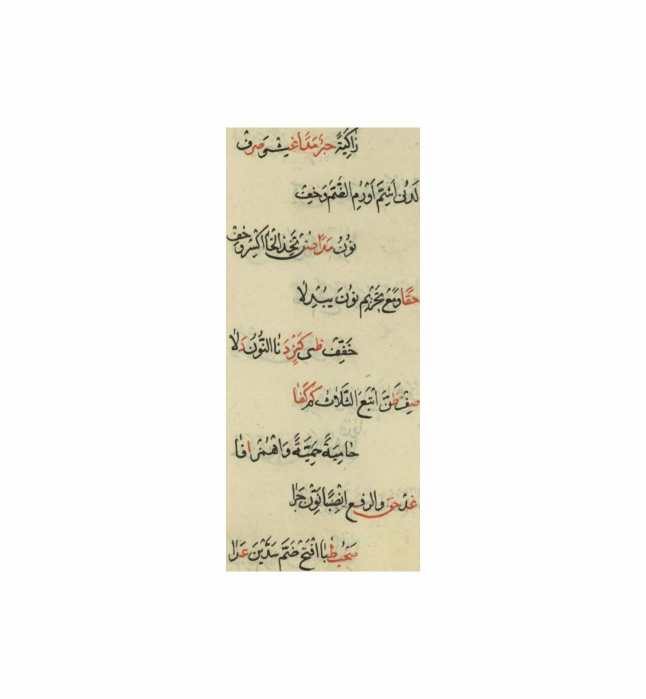 زَاكِيَةً حَبْرٌ مَدًا غِثْ وَصُرِفْ
لَدُنِي أَشِمَّ أَوْ رُمِ الضَّمَّ وَخِفْ
نُونُ مَدًا صُنْ تَخِذَ الْخَا اكْسِرْ وَخِفْ
حَقًّا وَمَعْ تَحْرِيمِ نُونَ يُبْدِلَا
خَفِّفْ ظُبى كَنْزٍ دَنَا النُّورُ دَلَا
صِفْ ظَنَّ اتْبَعَ الثَّلَاثَ كَمْ كَفَا
حَامِيَةً حَمِئَةٌ وَاهْمِزْ أفَا
عُدْ حَقَّ والرفع انْصِبًا نَوِّنْ جَزَا
صَحْبُ ظُبا افْتَحْ ضَمَّ سَدَّيْنِ عَزَا